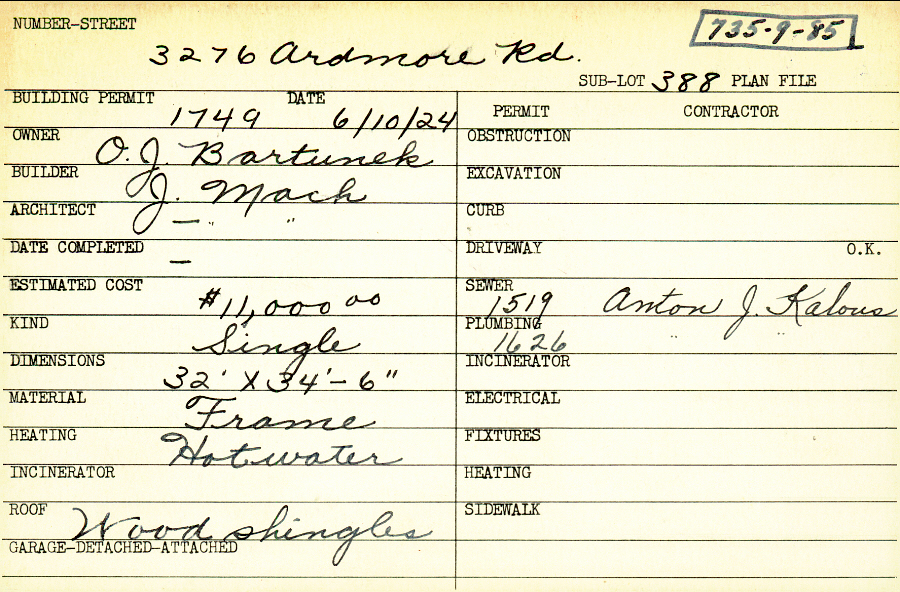 NUMBER-STREET
735-9-85
3276 Ardmore Rd.
SUB-LOT 388 PLAN FILE
BUILDING PERMIT DATE
1749 6/10/24
OWNER
O. J. Bartunek
BUILDER
J. Mach
ARCHITECT
— " "
DATE COMPLETED
—
ESTIMATED COST
#11,000 00
KIND
Single
DIMENSIONS
32' X 34'-6"
MATERIAL
Frame
HEATING
Hot water
INCINERATOR
ROOF
Wood shingles
GARAGE-DETACHED-ATTACHED
PERMIT CONTRACTOR
OBSTRUCTION
EXCAVATION
CURB
DRIVEWAY O.K.
SEWER
1519 Anton J. Kalous
PLUMBING
1626 " "
INCINERATOR
ELECTRICAL
FIXTURES
HEATING
SIDEWALK